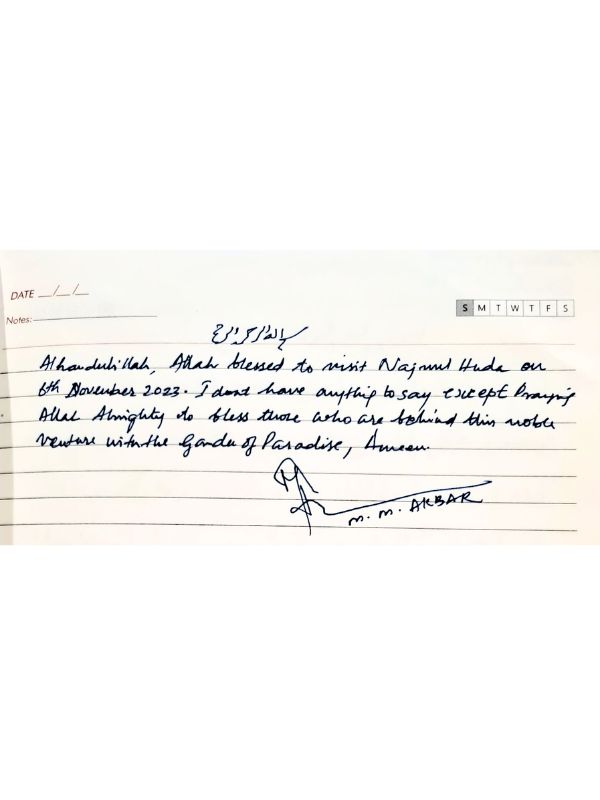 DATE __/__/__
S M T W T F S
Notes:
بسم الله الرحمن الرحيم
Alhamdulillah, Allah blessed to visit Najmul Huda on
6th November 2023. I dont have anything to say except Praying
Allah Almighty to bless those who are behind this noble
venture with the Garden of Paradise, Ameen.
M. M. AKBAR